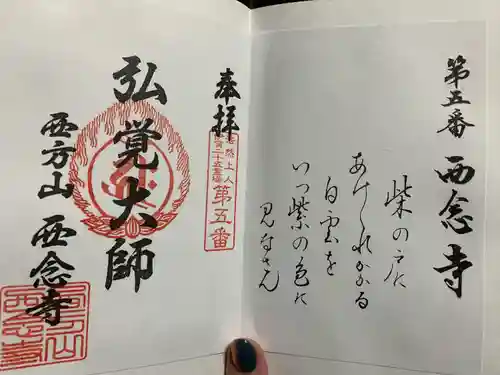 第五番 西念寺
柴の戸に
あけくれかかる
白雲を
いつ紫の色に
見なさん
奉拝
然上人
二十五霊場
第五番
弘覚大師
西方山 西念寺
西方山
西念寺